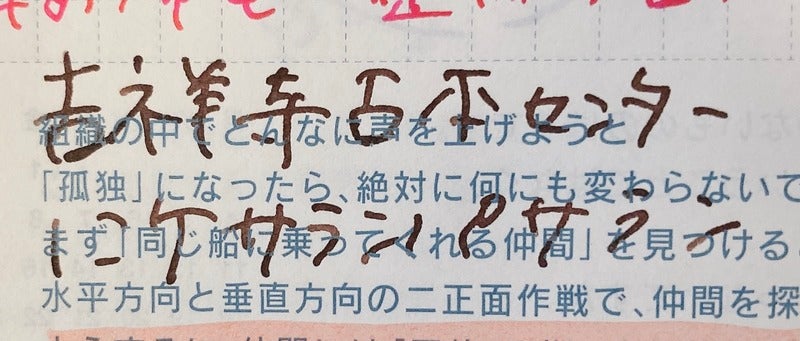 吉祥寺古本センター
組織の中でどんなに声を上げようと
「孤独」になったら、絶対に何にも変わらないで
にケサランパサラン
まず「同じ船に乗ってくれる仲間」を見つける
水平方向と垂直方向の二正面作戦で、仲間を探